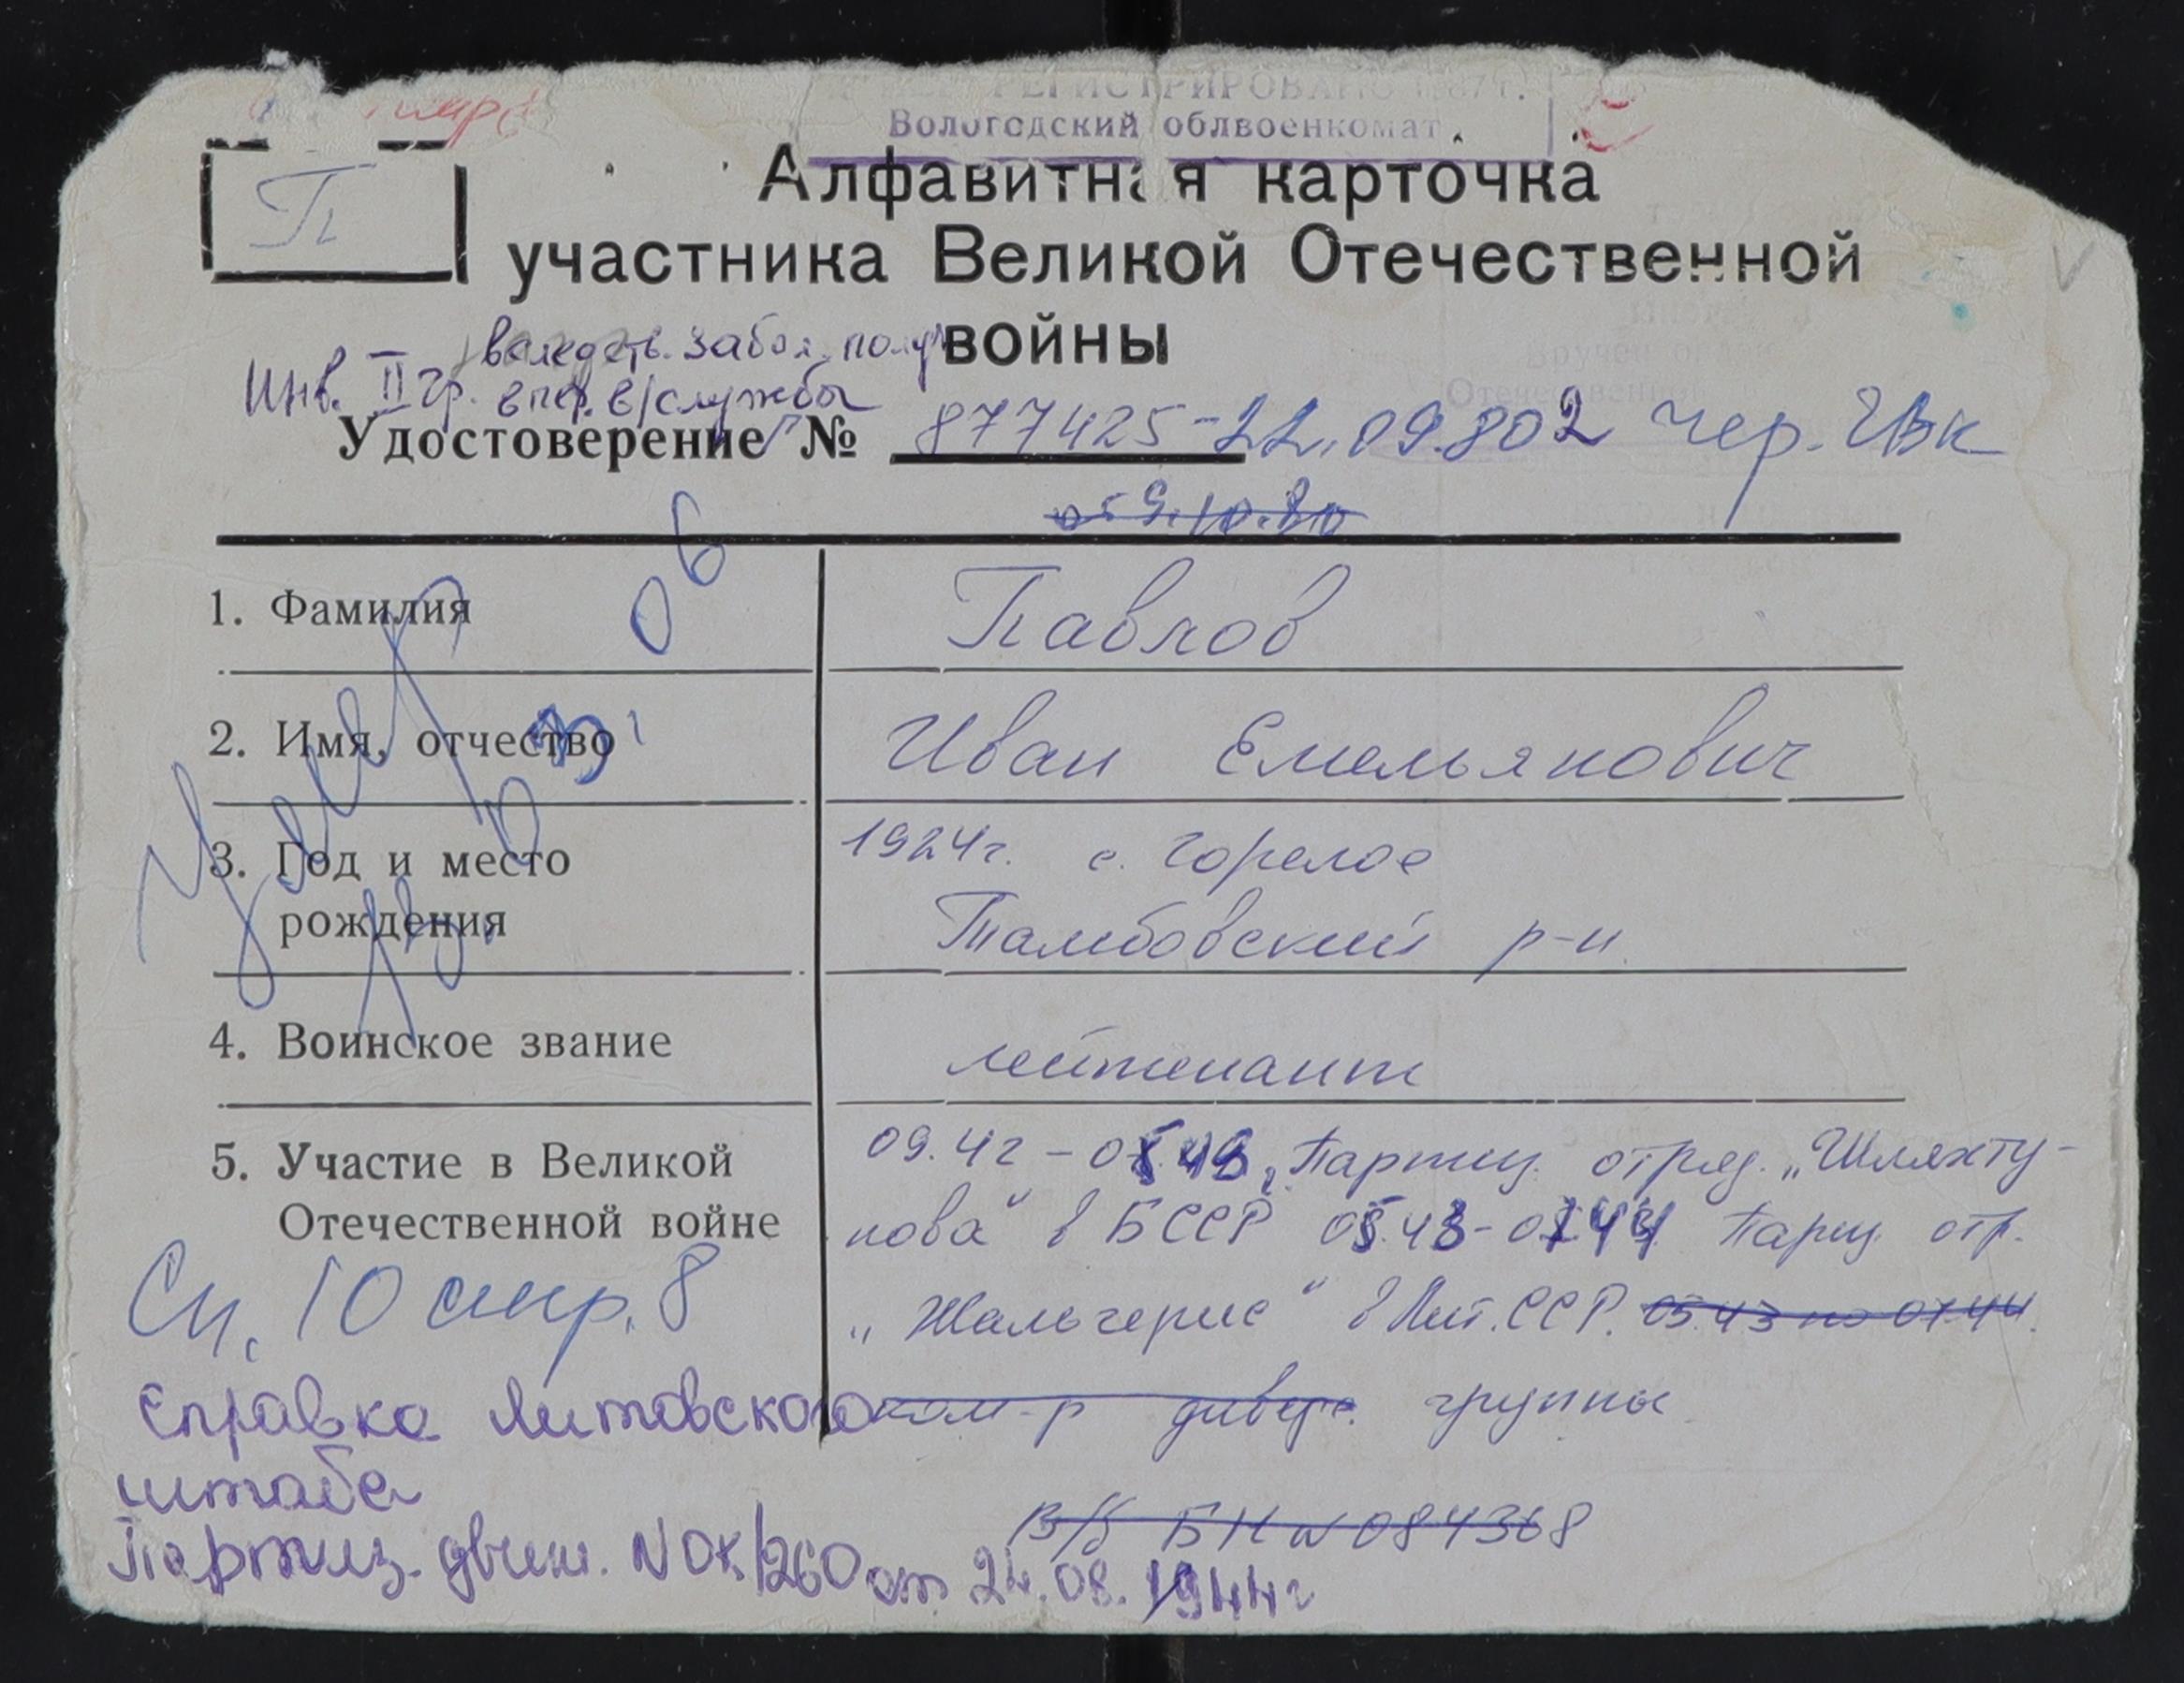 РЕГИСТРИРОВАНО
Вологодский облвоенкомат
П
Алфавитная карточка
участника Великой Отечественной
войны
вследств. забол. получ
Инв. II гр. в пер. в/службы
Удостоверение № 877425 - 22.09.802 Чер. ГВК
от 9.10.80
1. Фамилия
Павлов
2. Имя, отчество
Иван Емельянович
3. Год и место
рождения
1924г. с. Горелое
Тамбовский р-н
4. Воинское звание
лейтенант
5. Участие в Великой
Отечественной войне
09.42 - 05.43, Партиз. отряд. „Шляхту-
нова" в БССР 05.43 - 07.44 Парт. отр.
„Жальгерис" в Лит. ССР. 05.43 по 07.44.
ком-р диверс. группы
См. 10 стр. 8
Справка Литовского
штаба
Партиз. движ. N ОК/260 от 24.08.1944г
В/б БН N 084368